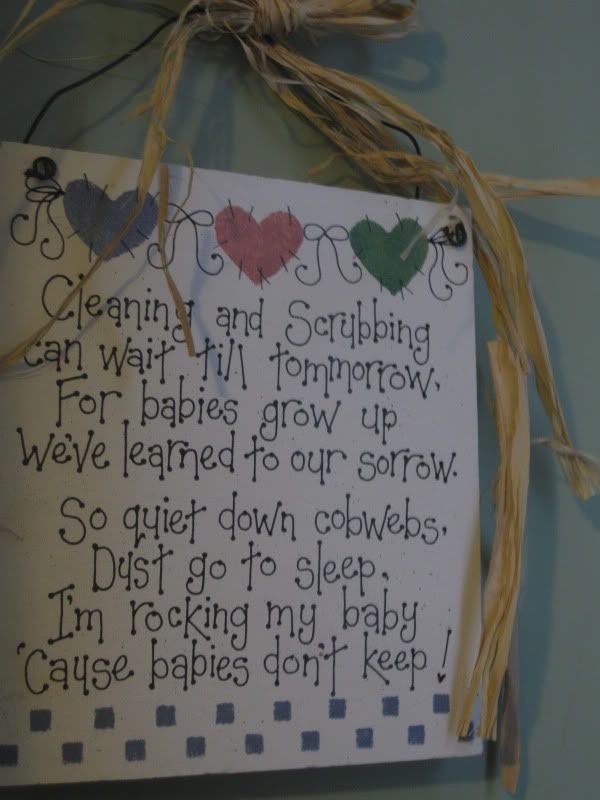 Cleaning and Scrubbing
can wait till tommorrow,
For babies grow up
We've learned to our sorrow.
So quiet down cobwebs,
Dust go to sleep,
I'm rocking my baby
'Cause babies don't keep!